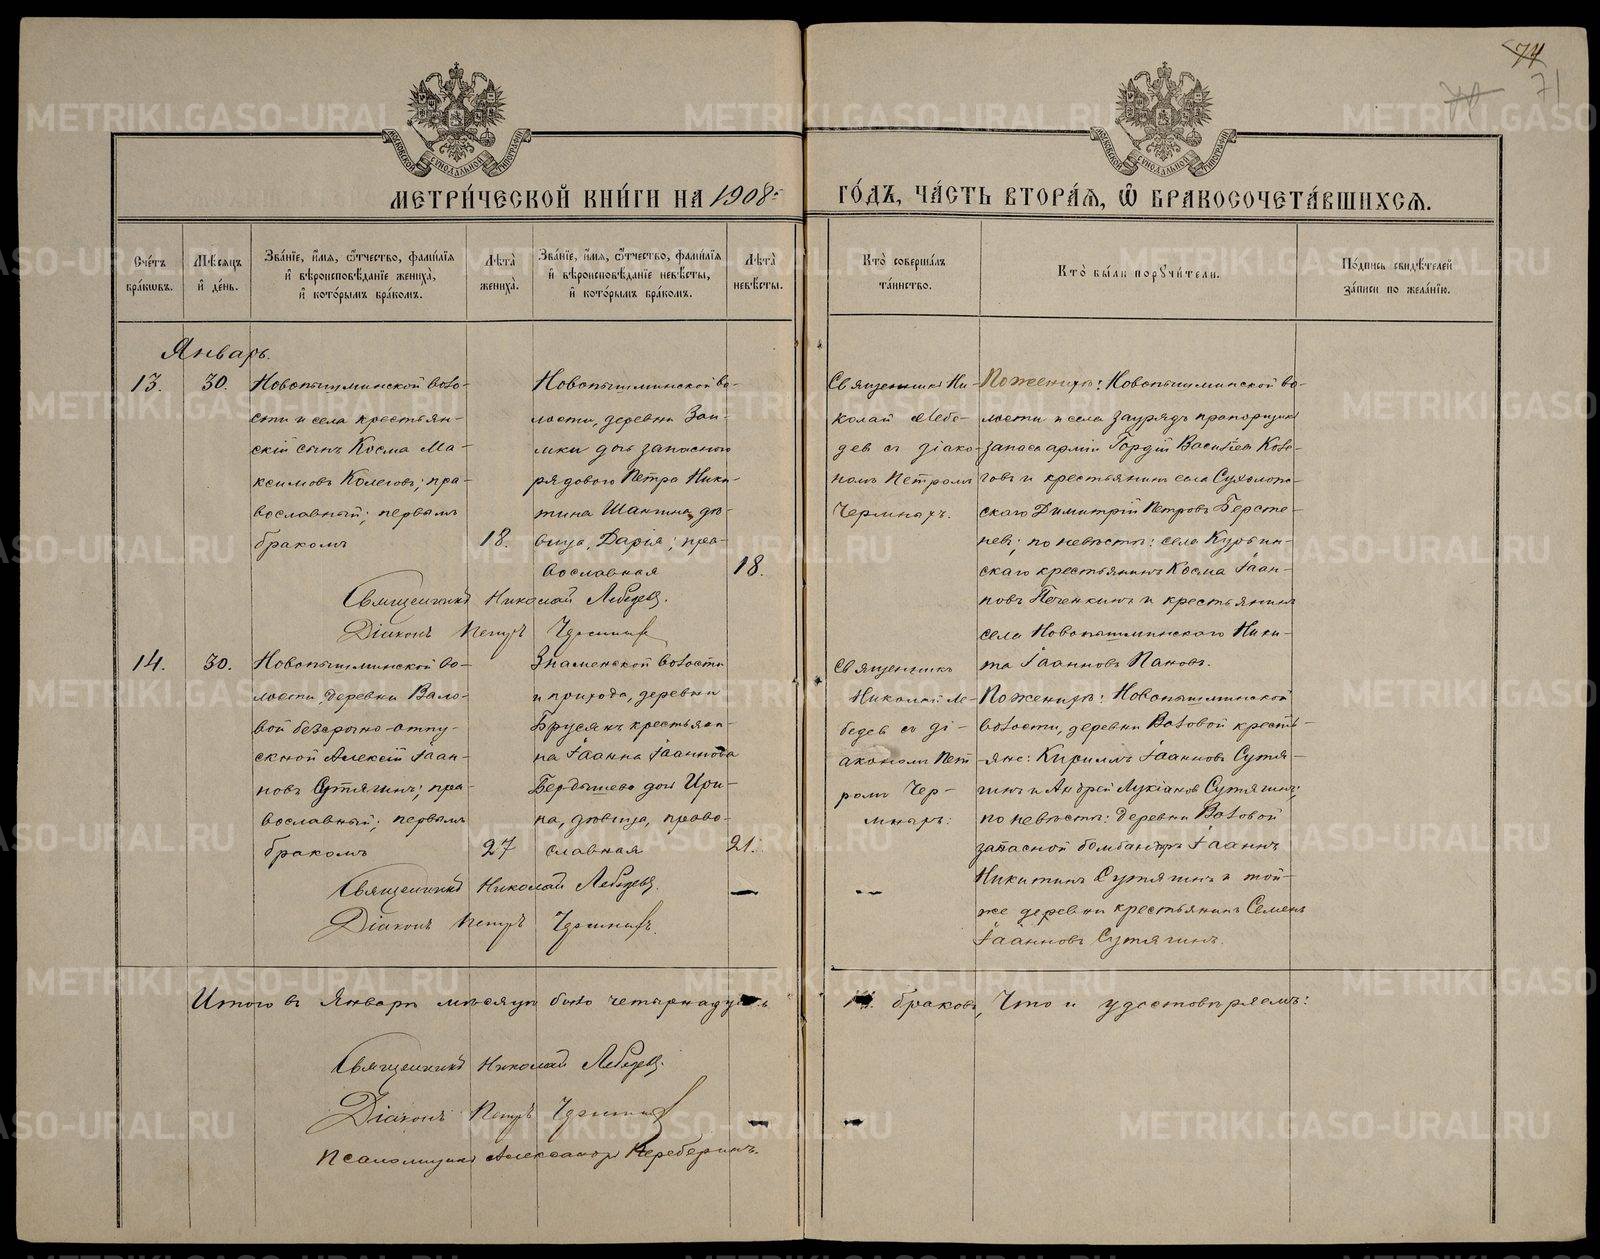 74
70
71
МЕТРИЧЕСКОЙ КНИГИ НА 1908
ГОДЪ, ЧАСТЬ ВТОРАЯ, Ѡ БРАКОСОЧЕТАВШИХСЯ.
Счетъ браковъ.
Мѣсяцъ и день.
Званіе, имя, отчество, фамилія
и вѣроисповѣданіе жениха,
и которымъ бракомъ.
Лѣта жениха.
Званіе, имя, отчество, фамилія
и вѣроисповѣданіе невѣсты,
и которымъ бракомъ.
Лѣта невѣсты.
Кто совершалъ
таинство.
Кто были поручители.
Подпись свидѣтелей
записи по желанію.
Январь.
13.
30.
Новопышминской воло-
сти и села крестьян-
скій сынъ Косма Ма-
ксимовъ Колеговъ; пра-
вославный; первымъ
бракомъ
18.
Новопышминской во-
лости, деревни Заи-
мки дочь запасного
рядового Петра Ники-
тина Шангина, дѣ-
вица, Дарія; пра-
вославная
18.
Священникъ Ни-
колай Лебе-
девъ съ діако-
номъ Петромъ
Чермныхъ.
По женихѣ: Новопышминской во-
лости и села заурядъ прапорщикъ
запаса арміи Гордій Васильевъ Коле-
говъ и крестьянинъ села Сухолож-
скаго Димитрій Петровъ Берсте-
невъ; по невѣстѣ: села Курьин-
скаго крестьянинъ Косма Іоан-
новъ Печенкинъ и крестьянинъ
села Новопышминскаго Ники-
та Іоанновъ Пановъ.
Священникъ Николай Лебедевъ.
Діаконъ Петръ Чермныхъ
14.
30.
Новопышминской во-
лости, деревни Вало-
вой безсрочно-отпу-
скной Алексій Іоан-
новъ Сутягинъ; пра-
вославный; первымъ
бракомъ
27
Знаменской волости
и прихода, деревни
Брусянъ крестьяни-
на Іоанна Іоаннова
Бердышева дочь Ири-
на, дѣвица, право-
славная
21.
Священникъ
Николай Ле-
бедевъ съ ді-
акономъ Пет-
ромъ Чер-
мныхъ:
По женихѣ: Новопышминской
волости, деревни Валовой кресть-
яне: Кириллъ Іоанновъ Сутя-
гинъ и Андрей Лукіановъ Сутягинъ;
по невѣстѣ: деревни Валовой
запасной бомбандиръ Іоаннъ
Никитинъ Сутягинъ и той-
же деревни крестьянинъ Семенъ
Іоанновъ Сутягинъ.
Священникъ Николай Лебедевъ.
Діаконъ Петръ Чермныхъ.
Итого въ Январѣ мѣсяцѣ было четырнадцать
браковъ, Что и удостовѣряемъ:
Священникъ Николай Лебедевъ.
Діаконъ Петръ Чермныхъ
Псаломщикъ Александръ Переберинъ.
METRIKI.GASO-URAL.RU